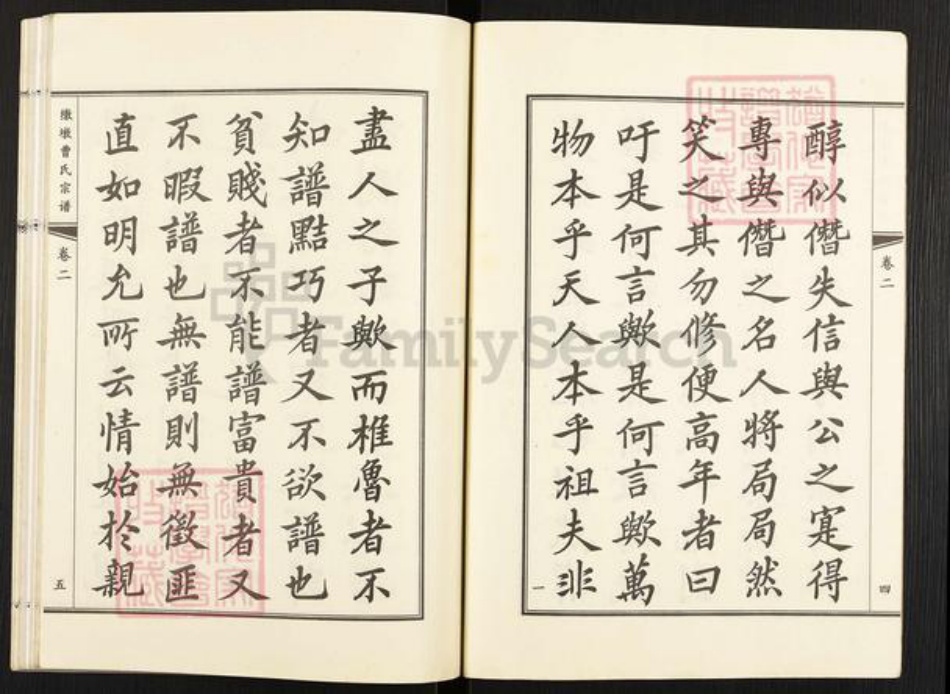 卷二
四
醇似僭失信與公之寔得
專與僭之名人將局局然
笑之其勿修便高年者曰
吁是何言歟是何言歟萬
物本乎天人本乎祖夫非
一
盡人之子歟而椎魯者不
知譜黠巧者又不欲譜也
貧賤者不能譜富貴者又
不暇譜也無譜則無徵匪
直如明允所云情始於親
墩曹氏宗谱
卷二
五
FamilySearch